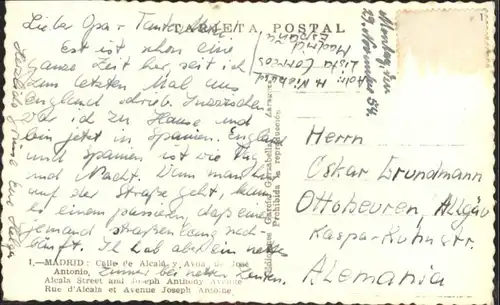 TARJETA POSTAL
Lieber Opa + Tante
Es ist schon eine
ganze Zeit her, seit ich
zum letzten Mal aus
England schrieb. Inzwischen
war ich zu Hause und
bin jetzt in Spanien. England
und Spanien ist wie Tag
und Nacht. Wenn man hier
auf der Straße geht, kann
es einem passieren, daß einer
jemand straßenlang nach-
läuft. Ich hab aber ein nettes
Zimmer bei netten Leuten.
Herzliche Grüße Euer
Lista Correos
Madrid
España
Montag, den
29. November 54
Herrn
Oskar Grundmann
Ottobeuren, Allgäu
Kaspar-Kuhn-str.
Alemania
Ediciones García Garrabella Zaragoza
Prohibida la reproducción
1.—MADRID: Calle de Alcalá y Avda. de José
Antonio.
Alcala Street and Joseph Anthony Avenue
Rue d'Alcala et Avenue Joseph Antoine